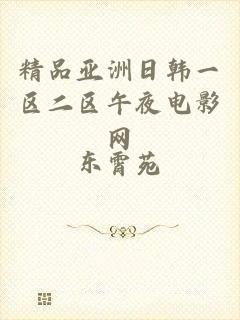 精品亚洲日韩一
区二区午夜电影
网
东霄苑